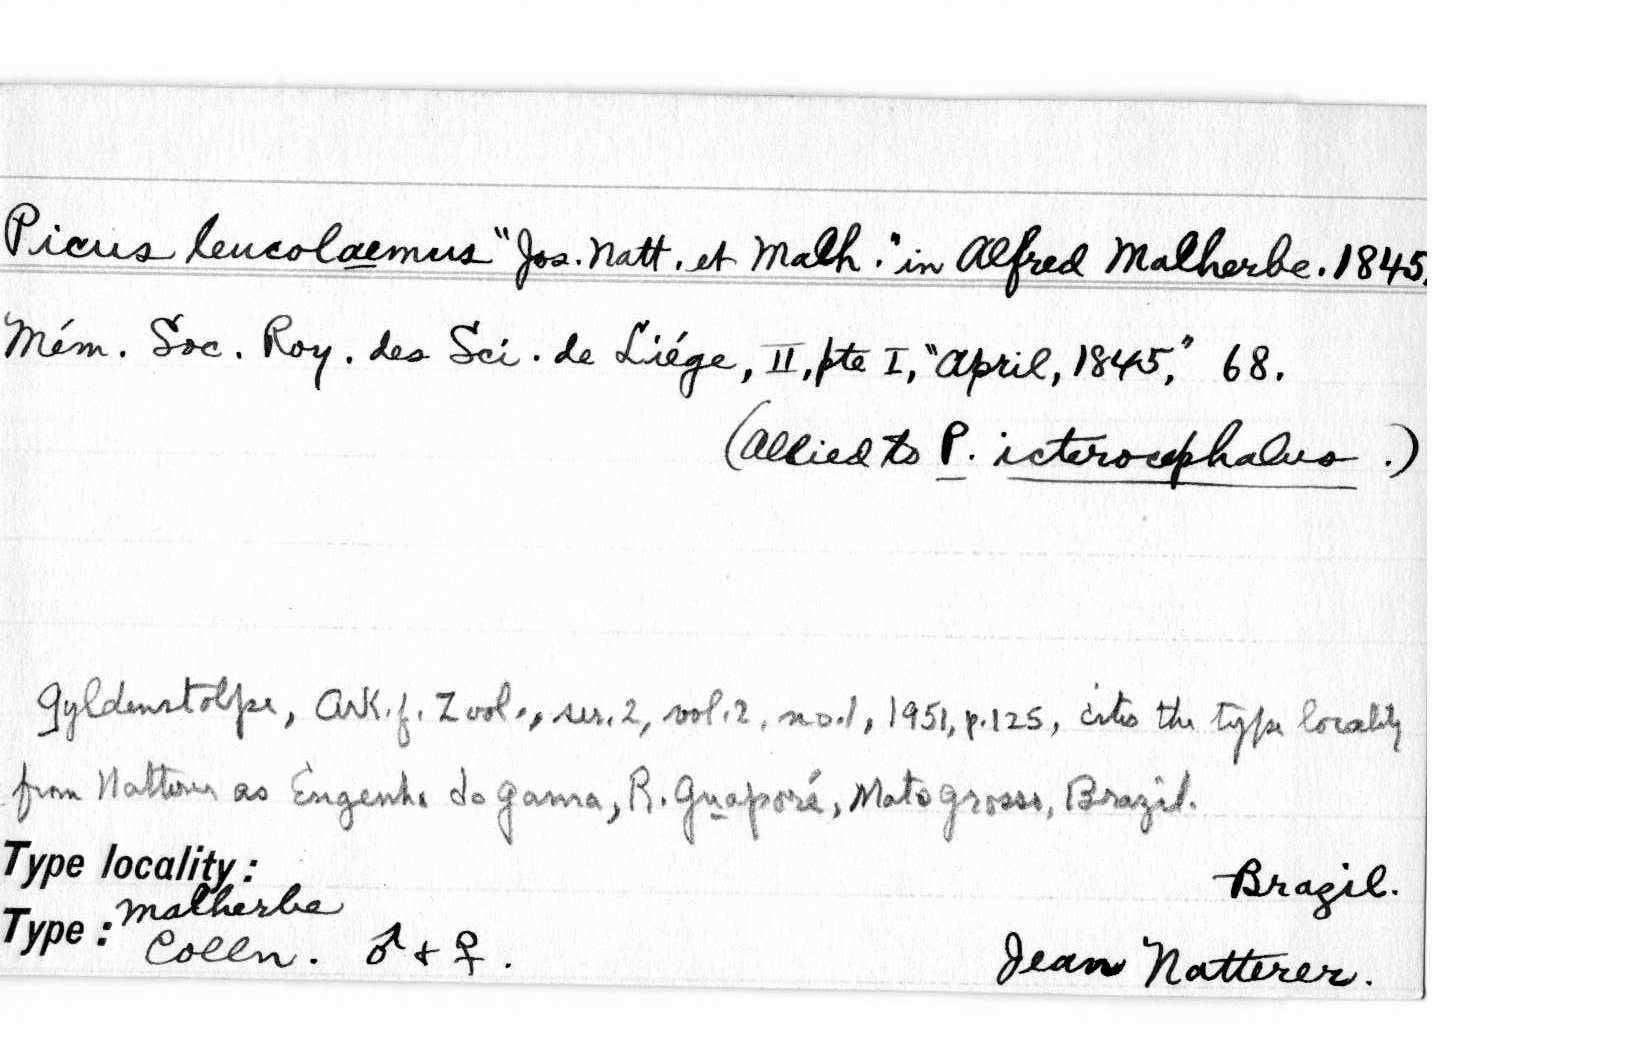 Picus leucolaemus "Jos. Natt. et Malh." in Alfred Malherbe. 1845,
Mém. Soc. Roy. des Sci. de Liége, II, pte I, "April, 1845," 68.
(Allied to P. icterocephalus.)
Gyldenstolpe, Ark. f. Zool., ser. 2, vol. 2, no. 1, 1951, p. 125, cites the type locality
from Natterer as Engenho do Gama, R. Guaporé, Mato Grosso, Brazil.
Type locality: Brazil.
Type: Malherbe
Colln. ♂ + ♀. Jean Natterer.